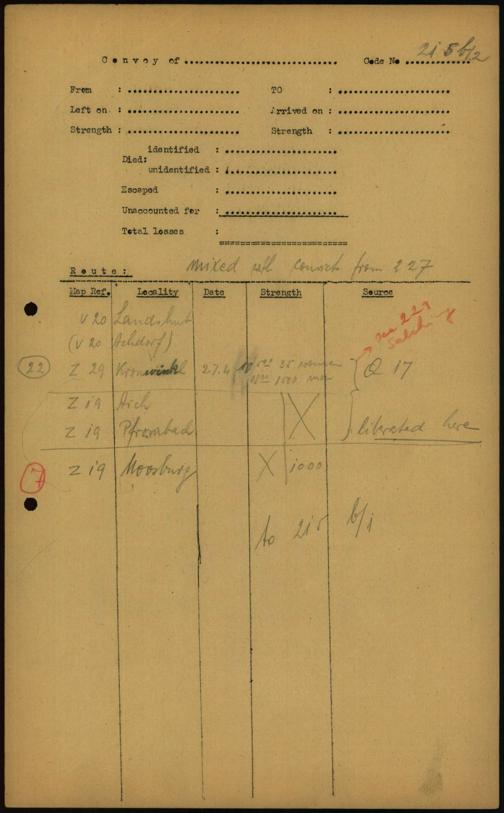 21 5 b/2
Convoy of .............................. Code No .............
From : ...................... TO : ......................
Left on : ...................... Arrived on : ......................
Strength : ...................... Strength : ......................
Died:
identified : ......................
unidentified : ......................
Escaped : ......................
Unaccounted for : ......................
Total losses :
Route: mixed with convoy from 227
Map Ref. Locality Date Strength Source
V 20 Landshut
(V 20 Achdorf)
22 Z 29 Kronwinkl 27.4 25 women Q 17
1500 men
Z 19 Aich X
Z 19 X liberated here
7 Z 19 Moosburg X 1000
to 215 b/1